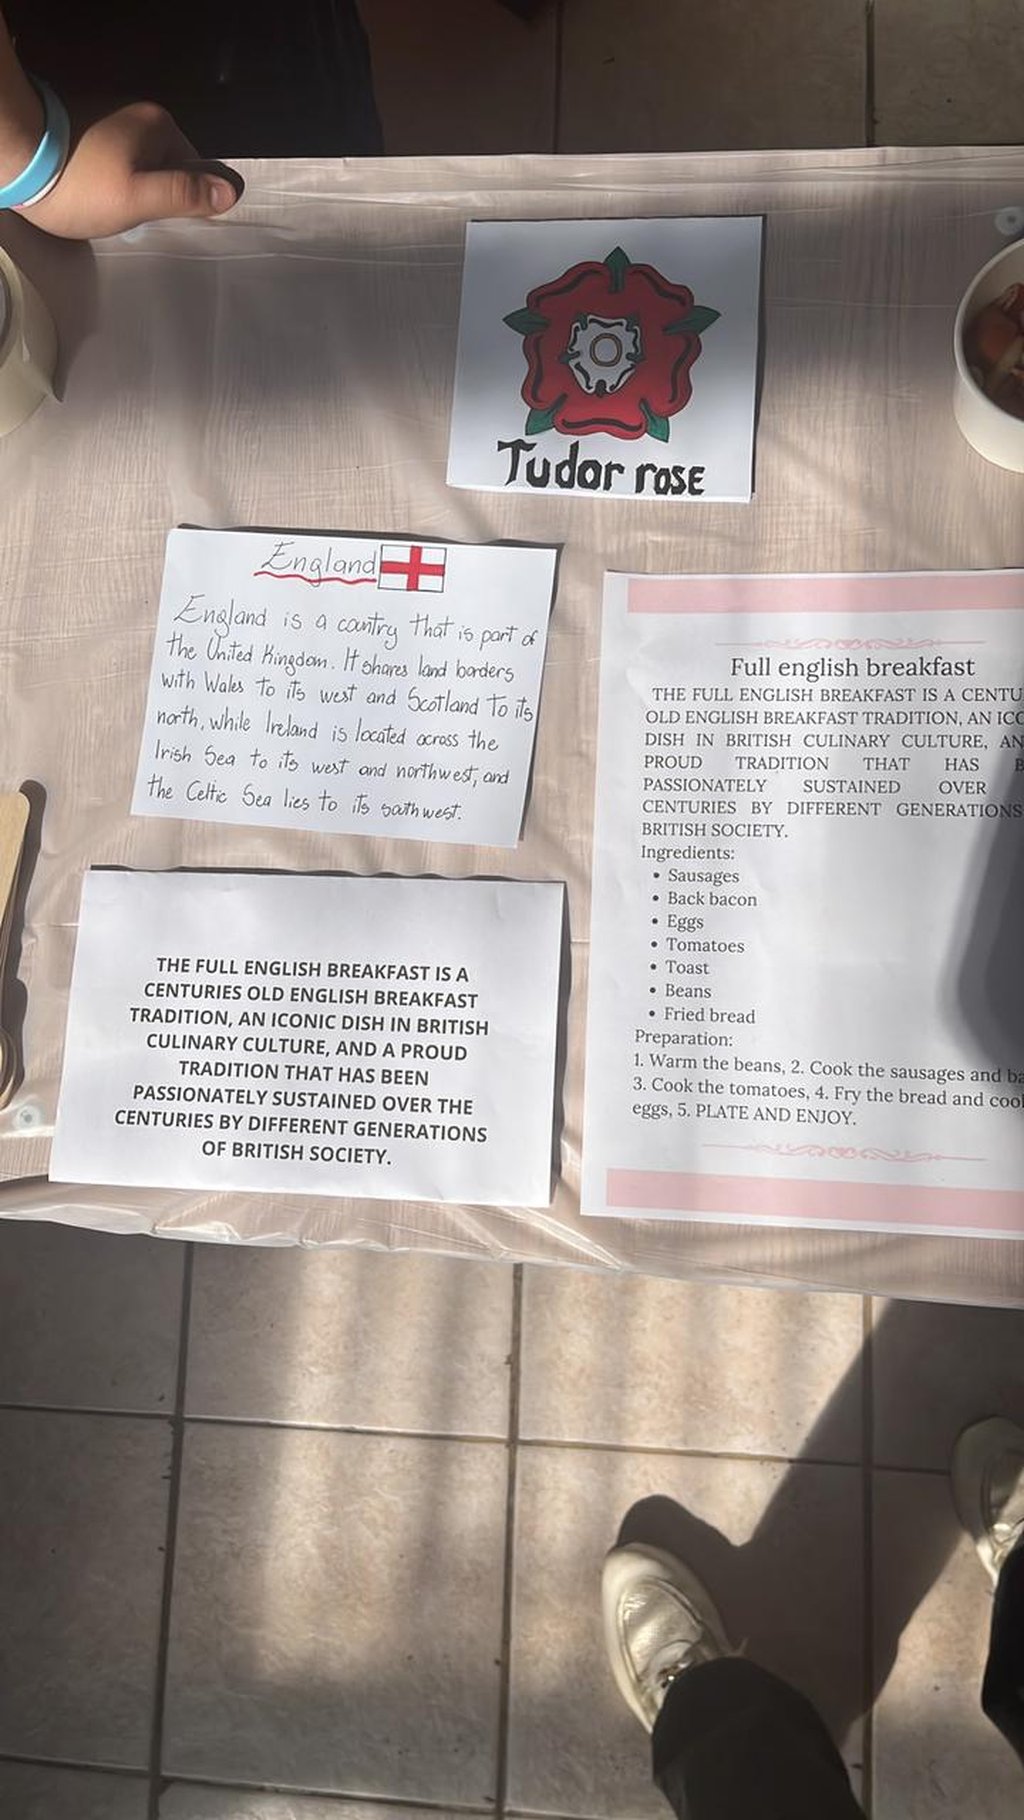 Tudor rose
England
England is a country that is part of
the United Kingdom. It shares land borders
with Wales to its west and Scotland to its
north, while Ireland is located across the
Irish Sea to its west and northwest, and
the Celtic Sea lies to its southwest.
THE FULL ENGLISH BREAKFAST IS A
CENTURIES OLD ENGLISH BREAKFAST
TRADITION, AN ICONIC DISH IN BRITISH
CULINARY CULTURE, AND A PROUD
TRADITION THAT HAS BEEN
PASSIONATELY SUSTAINED OVER THE
CENTURIES BY DIFFERENT GENERATIONS
OF BRITISH SOCIETY.
Full english breakfast
THE FULL ENGLISH BREAKFAST IS A
OLD ENGLISH BREAKFAST TRADITION, AN
DISH IN BRITISH CULINARY CULTURE,
PROUD TRADITION THAT HAS
PASSIONATELY SUSTAINED OVER
CENTURIES BY DIFFERENT GENERATIONS
BRITISH SOCIETY.
Ingredients:
• Sausages
• Back bacon
• Eggs
• Tomatoes
• Toast
• Beans
• Fried bread
Preparation:
1. Warm the beans, 2. Cook the sausages and
3. Cook the tomatoes, 4. Fry the bread and
eggs, 5. PLATE AND ENJOY.